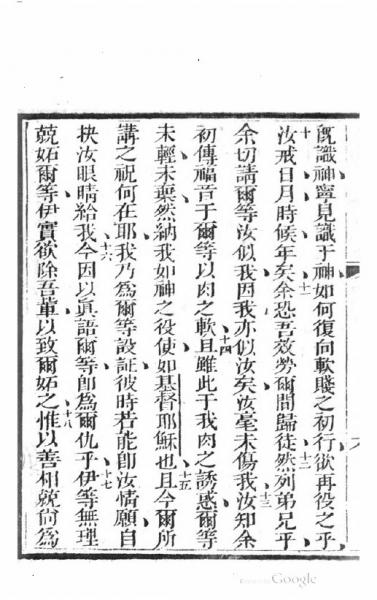 既識神寧見識于神如何復向軟賤之初行欲再役之乎
十、汝戒日月時候年矣十一余恐吾效勞爾間歸徒然十二列弟兄乎
余切請爾等汝似我因我亦似汝矣汝毫未傷我十三汝知余
初傳福音于爾等以肉之軟且十四雖此于我肉之誘惑爾等
未輕未棄然納我如神之役使如基督耶穌也十五且今爾所
講之祝何在耶我乃為爾等設証彼時若能卽汝情願自
抉汝眼睛給我十六今因以眞語爾等卽為爾仇乎十七伊等無理
兢妬爾等伊實欲除吾軰以致爾妬之十八惟以善相兢尙為
Google